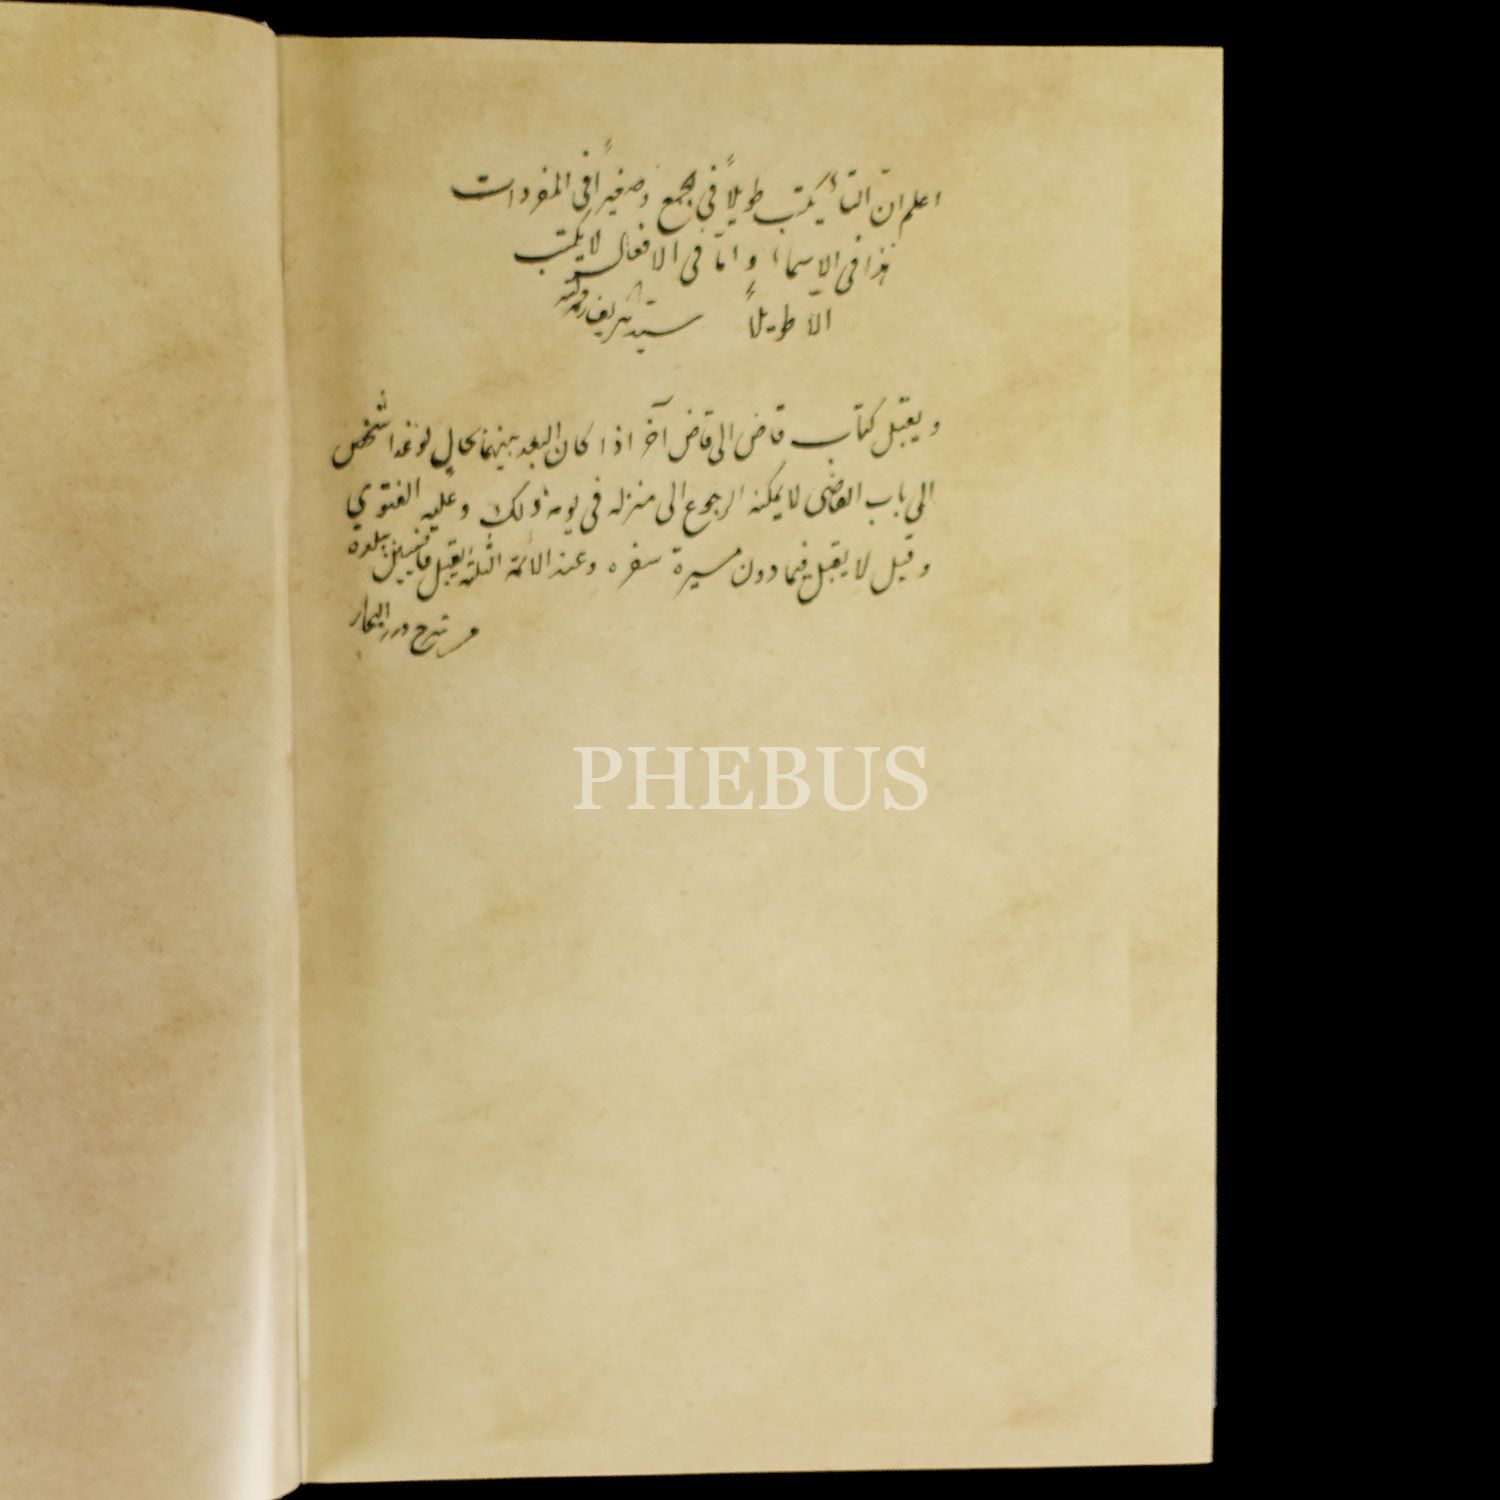 اعلم ان التاء يكتب طويلاً في الجمع وصغيراً في المفردات
هذا في الاسماء واما في الافعال لا يكتب
الا طويلاً سيد شريف رحمه الله
ويقبل كتاب قاض الى قاض آخر اذا كان البعد بينهما بحال لو غدا شخص
الى باب القاضى لا يمكنه الرجوع الى منزله في يومه ذلك وعليه الفتوى
وقيل لا يقبل فيما دون مسيرة سفره وعند الائمة الثلثة يقبل ببلدة
شرح درر البحار
PHEBUS